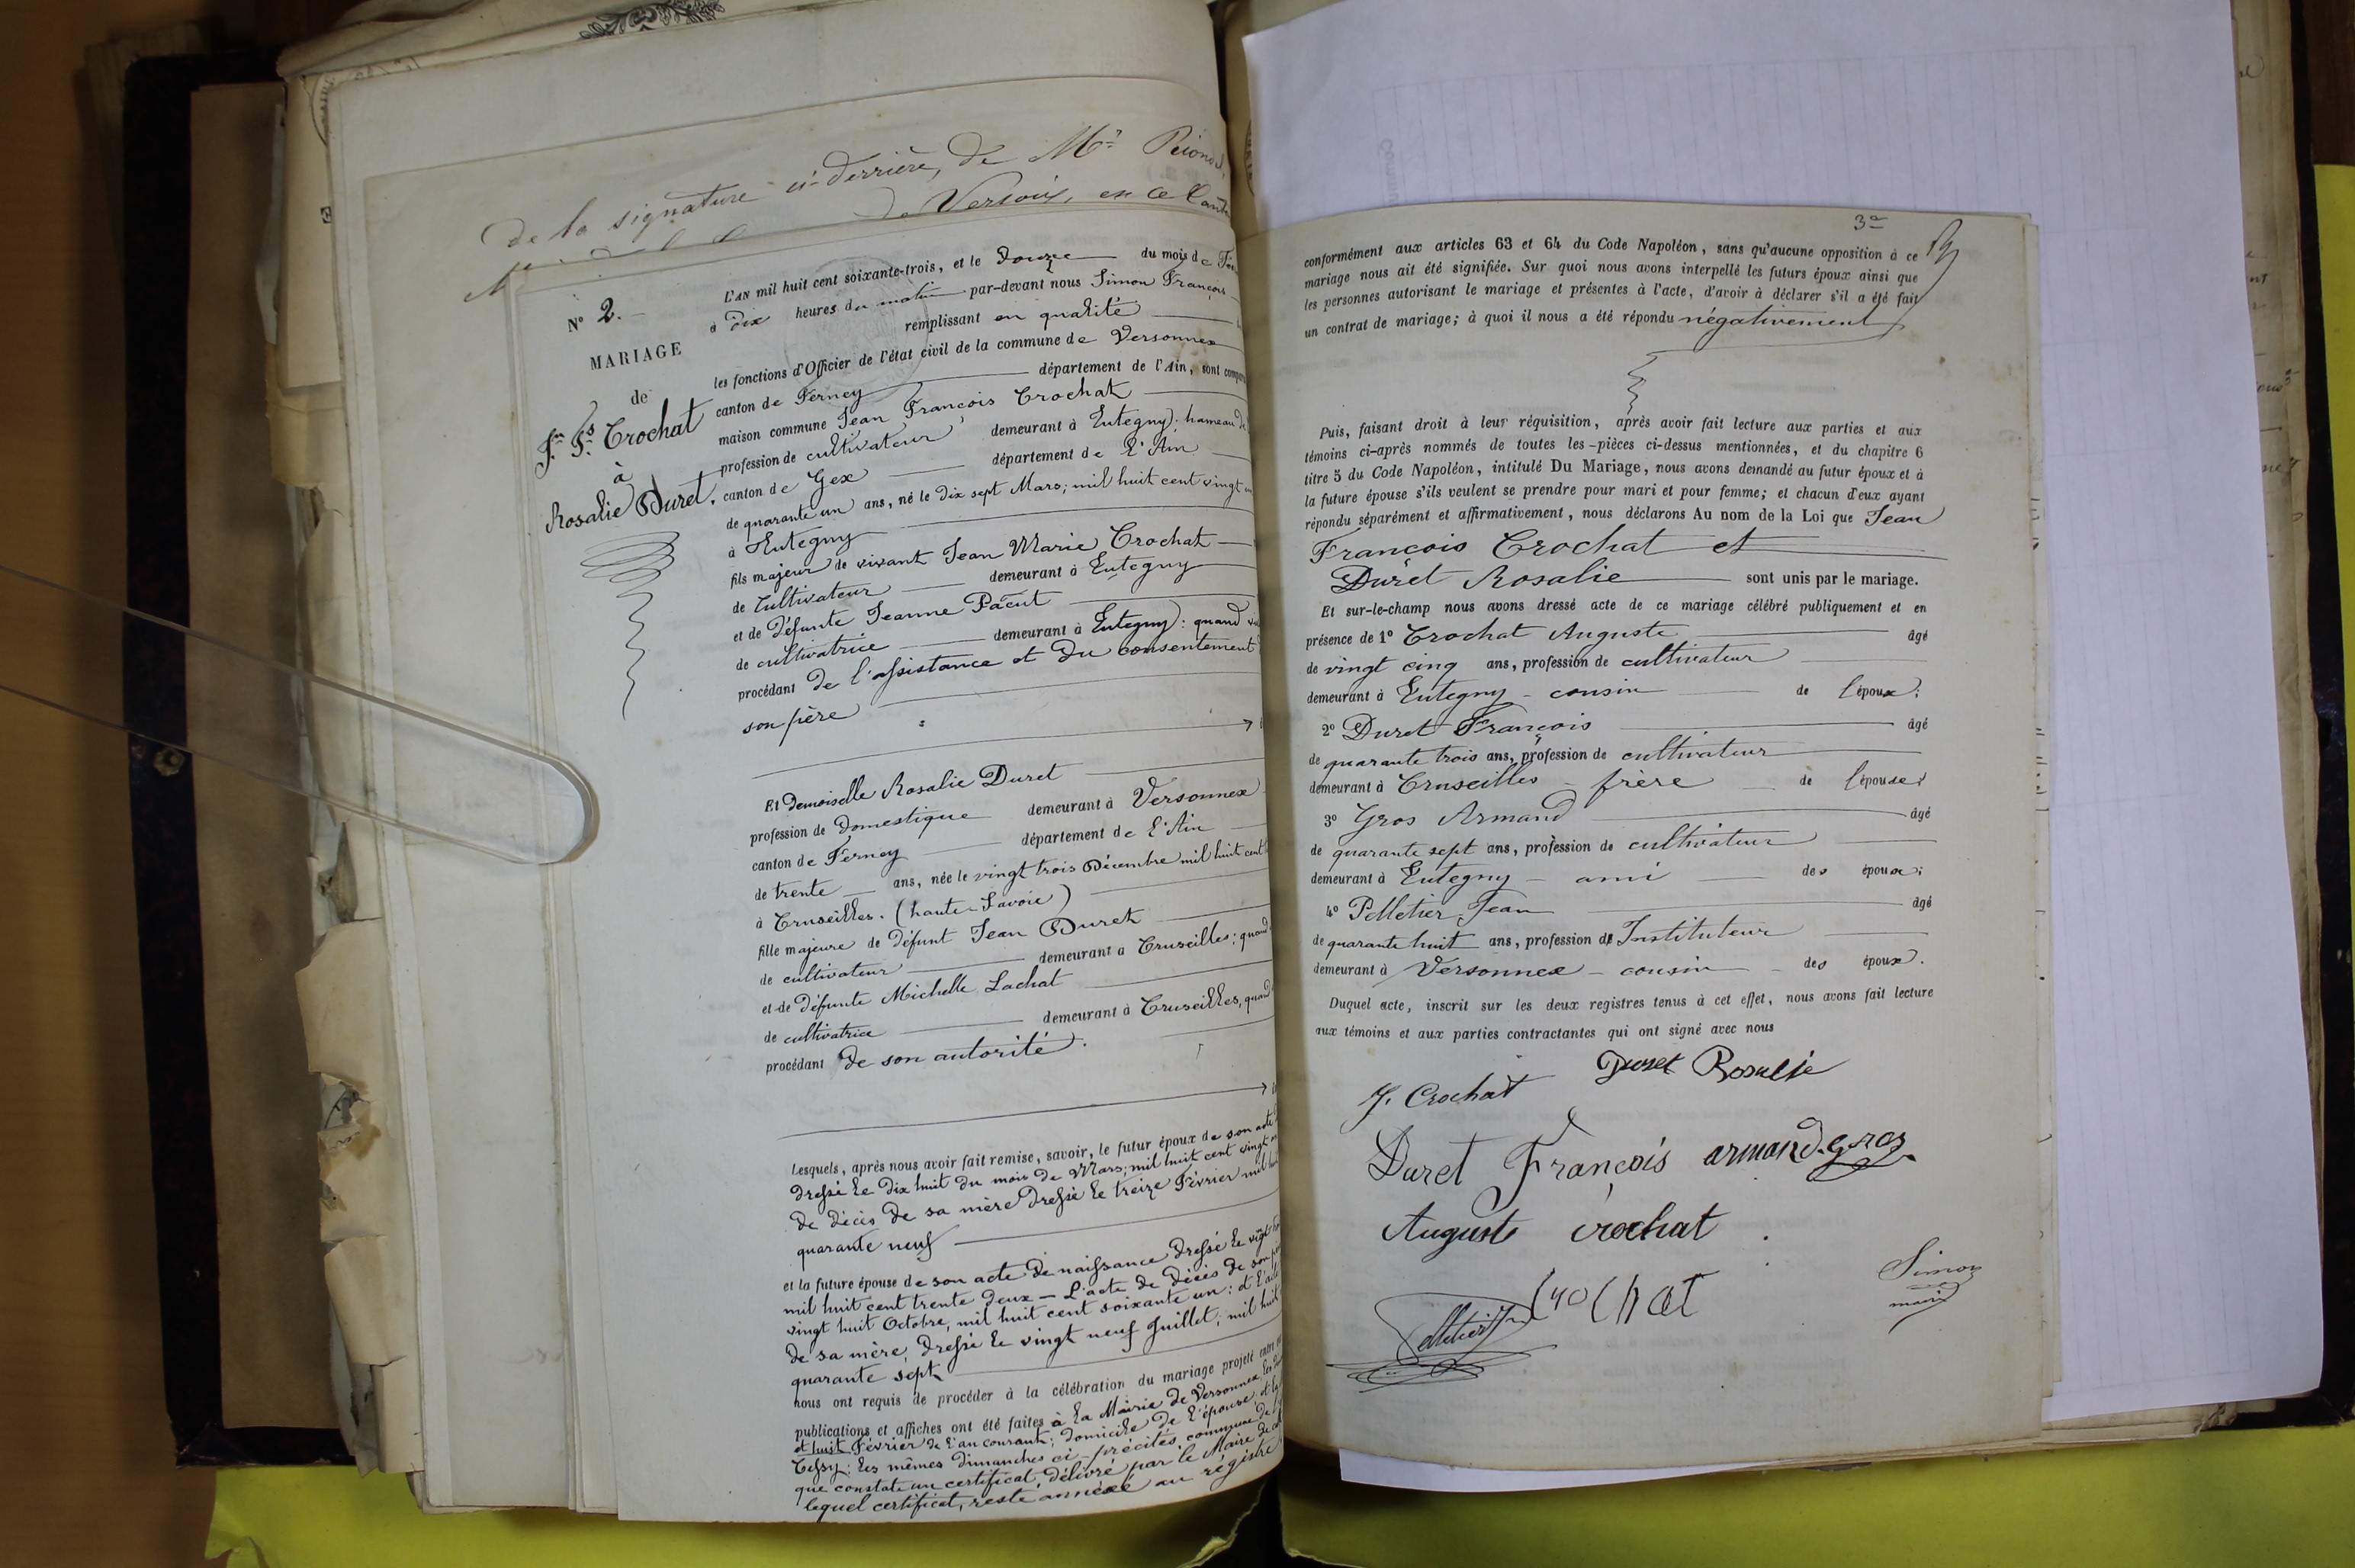 de la signature ci-derrière, de Mr
Versoix, en ce Cant
N° 2.
MARIAGE
de
Jn. Fs. Crochat
à
Rosalie Duret.
L'AN mil huit cent soixante-trois, et le douze du mois de Fév
à dix heures du matin par-devant nous Simon François
remplissant en qualité
les fonctions d'Officier de l'état civil de la commune de Versonnex
canton de Ferney département de l'Ain, sont compar
maison commune Jean François Crochat
profession de cultivateur demeurant à Eutegny: hameau de
canton de Gex département de l'Ain
de quarante un ans, né le dix sept Mars; mil huit cent vingt un
à Eutegny
fils majeur de vivant Jean Marie Crochat
de Cultivateur demeurant à Eutegny
et de défunte Jeanne Pacut
de cultivatrice demeurant à Eutegny: quand viv
procédant de l'assistance et du consentement
son père
Et Demoiselle Rosalie Duret
profession de domestique demeurant à Versonnex
canton de Ferney département de l'Ain
de trente ans, née le vingt trois Décembre mil huit cent
à Cruseilles. (haute-Savoie)
fille majeure de défunt Jean Duret
de cultivateur demeurant à Cruseilles; quand
et de défunte Michelle Lachat
de cultivatrice demeurant à Cruseilles, quand
procédant de son autorité.
Lesquels, après nous avoir fait remise, savoir, le futur époux de son acte
dressé le dix huit du mois de Mars; mil huit cent vingt un
de décès de sa mère dressé le treize Février mil huit
quarante neuf
et la future épouse de son acte de naissance dressé le vingt
mil huit cent trente deux – L'acte de décès de son père
vingt huit Octobre, mil huit cent soixante un: et l'acte
de sa mère, dressé le vingt neuf Juillet, mil huit
quarante sept
nous ont requis de procéder à la célébration du mariage projeté entre
publications et affiches ont été faites à la Mairie de Versonnex les
et huit Février de l'an courant; domicile de l'épouse, et
Cessy; les mêmes dimanches ci-précités, commune de
que constate un certificat, délivré par le Maire de
lequel certificat, resté annéxé au régistre
3e
conformément aux articles 63 et 64 du Code Napoléon, sans qu'aucune opposition à ce
mariage nous ait été signifiée. Sur quoi nous avons interpellé les futurs époux ainsi que
les personnes autorisant le mariage et présentes à l'acte, d'avoir à déclarer s'il a été fait
un contrat de mariage; à quoi il nous a été répondu négativement
Puis, faisant droit à leur réquisition, après avoir fait lecture aux parties et aux
témoins ci-après nommés de toutes les pièces ci-dessus mentionnées, et du chapitre 6
titre 5 du Code Napoléon, intitulé Du Mariage, nous avons demandé au futur époux et à
la future épouse s'ils veulent se prendre pour mari et pour femme; et chacun d'eux ayant
répondu séparément et affirmativement, nous déclarons Au nom de la Loi que Jean
François Crochat et
Duret Rosalie sont unis par le mariage.
Et sur-le-champ nous avons dressé acte de ce mariage célébré publiquement et en
présence de 1° Crochat Auguste âgé
de vingt cinq ans, profession de cultivateur
demeurant à Eutegny - cousin de l'époux;
2° Duret François âgé
de quarante trois ans, profession de cultivateur
demeurant à Cruseilles - frère de l'épouse;
3° Gros Armand âgé
de quarante sept ans, profession de cultivateur
demeurant à Eutegny - ami des époux;
4° Pelletier Jean âgé
de quarante huit ans, profession de Instituteur
demeurant à Versonnex - cousin des époux.
Duquel acte, inscrit sur les deux registres tenus à cet effet, nous avons fait lecture
aux témoins et aux parties contractantes qui ont signé avec nous
Duret Rosalie
J. Crochat
Duret François armand gros
Auguste crochat
Simon
maire
Crochat
Pelletier Jn